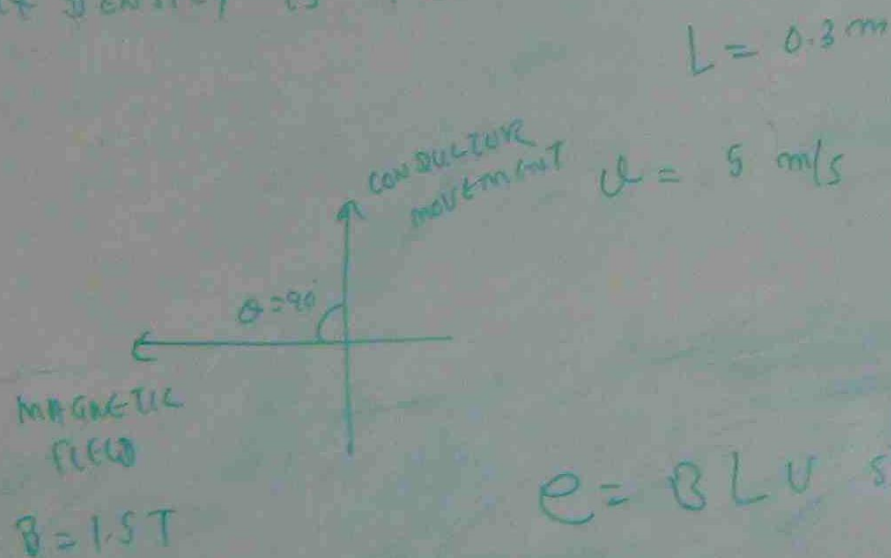 DENSITY IS
L = 0.3 m
CONDUCTOR
MOVEMENT
v = 5 m/s
θ=90°
MAGNETIC
FIELD
B = 1.5T
e = BLV s